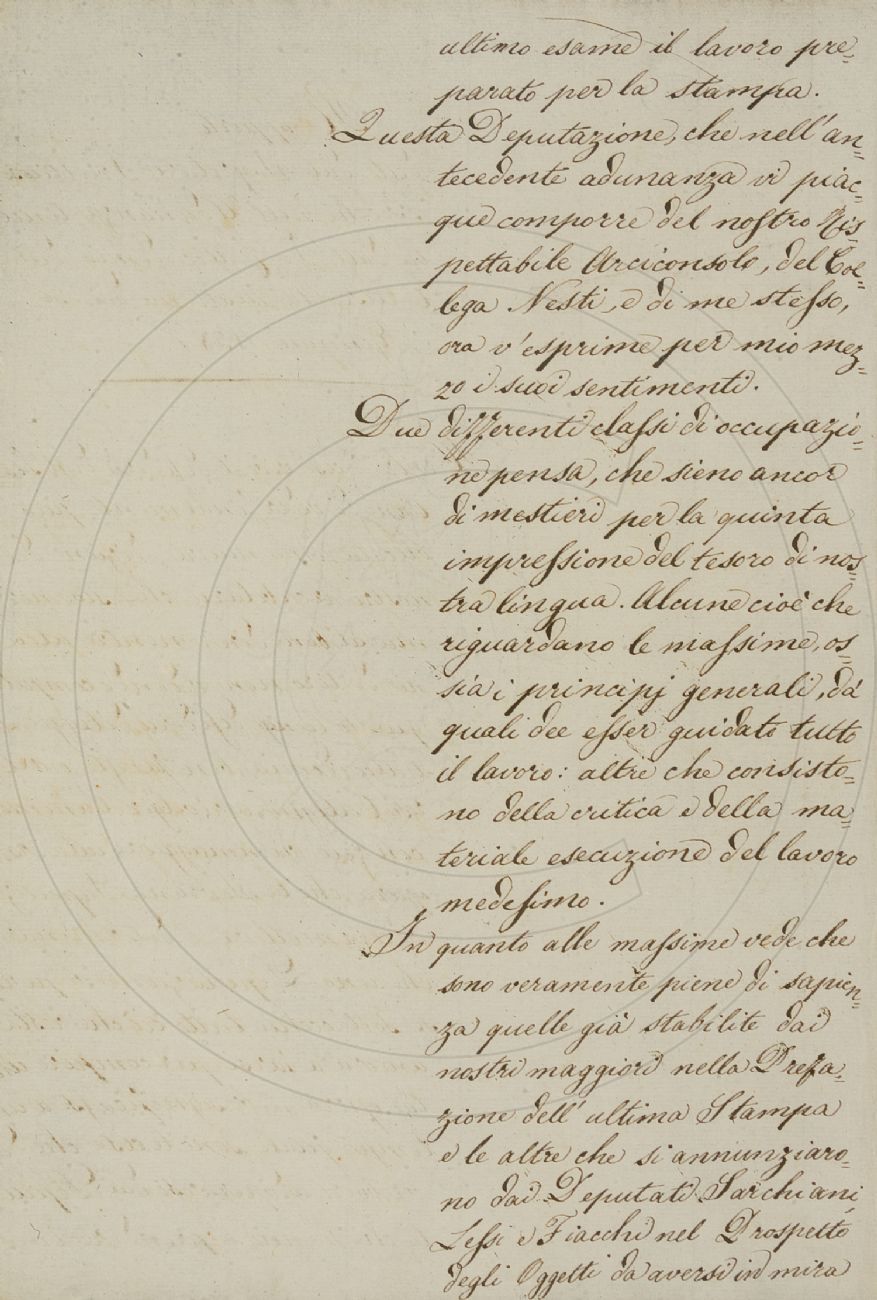 ultimo esame il lavoro pre=
parato per la stampa.
Questa Deputazione, che nell'an=
tecedente adunanza vi piac=
que comporre del noſtro Ris=
pettabile Arciconsolo, del Col=
lega Nesti, e di me steſso,
ora v'esprime per mio mez=
zo i suoi sentimenti.
Due differenti claſsi di occupazio=
ne pensa, che sieno ancor
di mestieri per la quinta
impreſsione del tesoro di nos=
tra lingua. Alcune cioè che
riguardano le maſsime, os=
sia i principj generali, da'
quali dee eſser guidato tutto
il lavoro: altre che consisto=
no della critica e della ma=
teriale esecuzione del lavoro
medeſimo.
In quanto alle maſsime vede che
sono veramente piene di sapien=
za quelle già stabilite dai
nostri maggiori nella Prefa=
zione dell'ultima Stampa
e le altre che si annunziaro=
no dai Deputati Sarchiani,
Leſsi e Fiacchi nel Prospetto
degli Oggetti da aversi in mira